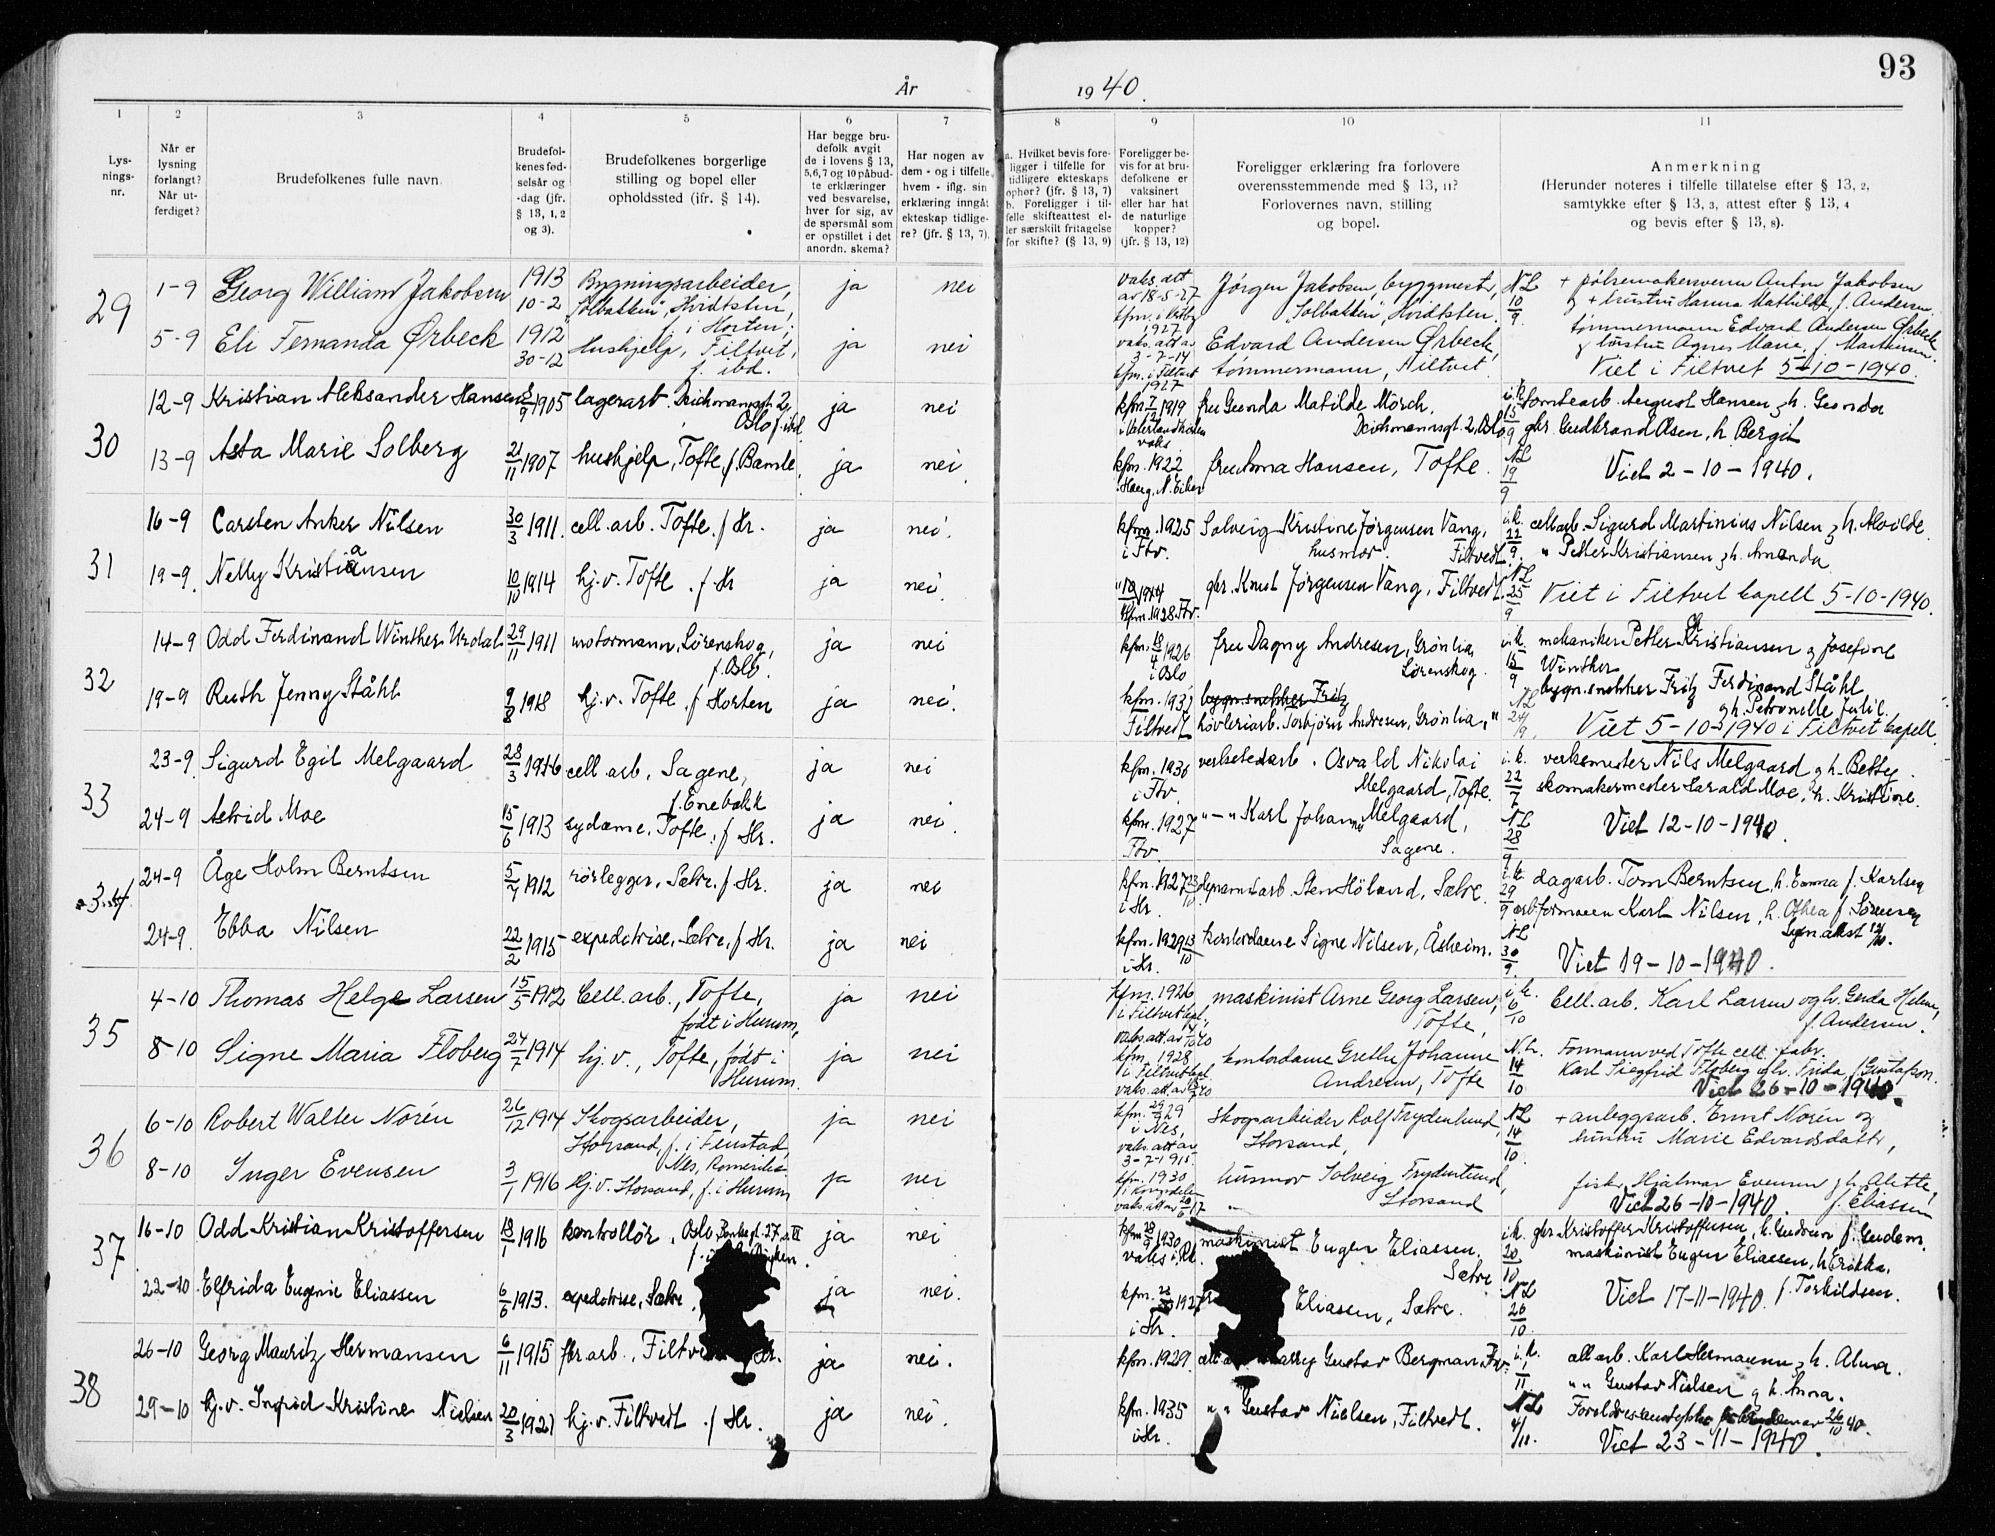 93
År 1940.
1 2 3 4 5 6 7 8 9 10 11
Lysningsnr.
Når er lysning forlangt? Når utferdiget?
Brudefolkenes fulle navn.
Brudefolkenes fødselsår og -dag (jfr. § 13, 1, 2 og 3).
Brudefolkenes borgerlige stilling og bopel eller opholdssted (jfr. § 14).
Har begge brudefolk avgit de i lovens § 13, 5, 6, 7 og 10 påbudte erklæringer ved besvarelse, hver for sig, av de spørsmål som er opstillet i det anordn. skema?
Har nogen av dem - og i tilfelle, hvem - iflg. sin erklæring inngåt ekteskap tidligere? (jfr. § 13, 7).
a. Hvilket bevis foreligger i tilfelle for tidligere ekteskaps ophør? (jfr. § 13, 7) b. Foreligger i tilfelle skifteattest eller særskilt fritagelse for skifte? (§ 13, 9)
Foreligger bevis for at brudefolkene er vaksinert eller har hat de naturlige kopper? (jfr. § 13, 12)
Foreligger erklæring fra forlovere overensstemmende med § 13, 11? Forlovernes navn, stilling og bopel.
Anmerkning (Herunder noteres i tilfelle tillatelse efter § 13, 2, samtykke efter § 13, 3, attest efter § 13, 4 og bevis efter § 13, 8).
29
1-9 Georg William Jakobsen 1913 10-2 Bygningsarbeider, "Solbakken", Hvidtsten, f. i Horten; ja nei vaks.att av 18-5-27 1927 Jørgen Jakobsen, byggmest., "Solbakken", Hvidtsten. NL 10/9. + pølsemakersvenn Anton Jakobsen og + hustru Hanna Mathilde, f. Andersen.
5-9 Eli Fernanda Ørbeck 1912 30-12 Hushjelp, Filtvet, f. ibd. ja nei vaks.att av 3-7-14 kfm. i Filtvet 1927 Edvard Andersen Ørbeck, tømmermann, Filtvet. tømmermann Edvard Andersen Ørbeck og hustru Agnes Marie, f. Martinsen.
Viet i Filtvet 5-10-1940.
30
12-9 Kristian Aleksander Hansen 2/9 1905 lagerarb. Deichmannsgt. 2, Oslo f. ibd. ja nei kfm. 1919 vaks. fru Geonda Matilde Mörch. Deichmannsgt. 2, Oslo i.k. 15/9 tomtearb. August Hansen og h. Geonda
13-9 Asta Marie Solberg 21/11 1907 hushjelp, Tofte, f. Bamle, ja nei. kfm. 1922 Haug, N. Eiker fru Anna Hansen, Tofte. NL 19/9 gbr Gudbrand Olsen, h. Bergit
Viet 2-10-1940.
31
16-9 Carsten Anker Nilsen 30/3 1911. cell. arb. Tofte. f. Hr. ja nei. kfm. 1925 i Ftv. Solveig Kristine Jørgensen Vang, husmor. Filtvedt. i.k. 22/9. cell arb. Sigurd Martinius Nilsen og h. Alvilde.
19-9. Nelly Kristiansen 10/10 1914 hj. v. Tofte. f. Hr ja nei. kfm. 1928 Ftv. gbr. Knut Jørgensen Vang, Filtvedt. NL 25/9 " Petter Kristiansen og h. Amanda.
Viet i Filtvet kapell 5-10-1940.
32
14-9 Odd Ferdinand Winther Urdal 29/11 1911 motormann, Lørenskog, f. Oslo. ja nei kfm. 18/4 1926 i Oslo, fru Dagny Andresen, Grønlia, Lørenskog. i.k. 15/9 mekaniker Petter Kristiansen og Josefine Winther
19-9 Ruth Jenny Ståhl 9/8 1918 hj. v. Tofte. f. Horten ja nei. kfm. 1931 Filtvedt bygn.snekker Fritz høvleriarb. Torbjörn Andresen, Grönlia, " NL 24/9. bygn. snekker Fritz Ferdinand Ståhl og h. Petronelle Julie.
Viet 5-10-1940 i Filtvet kapell.
33
23-9. Sigurd Egil Melgaard 28/3 1916 cell arb. Sagene, f. Enebakk ja nei kfm. 1930 i Ftv. verkstedarb. Osvald Nikolai Melgaard, Tofte. i.k. 22/7 verksmester Nils Melgaard og h. Betty.
24-9 Astrid Moe 15/6 1913 sydame, Tofte, f. Hr. ja nei. kfm. 1927 Ftv. "-" Karl Johannes Melgaard, Sagene. NL 28/9 skomakermester Harald Moe, h. Kristine.
Viet 12-10-1940.
34
24-9 Åge Holm Berntsen 5/7 1912 rörlegger, Sætre. f. Hr. ja nei kfm. 1927 i Hr. dynamitarb. Sten Höland, Sætre. i.k. 29/9 dagarb. Tom Berntsen, h. Emma f. Karlsen
24-9. Ebba Nilsen 22/2 1915 expeditrise, Sætre, f. Hr. ja nei kfm. 1929 i Hr. kontordame Signe Nilsen, Åsheim. NL 30/9. arb.formann Karl Nilsen, h. Othea f. Sörensen
Viet 19-10-1940.
35
4-10 Thomas Helge Larsen 15/5 1912 Cell. arb., Tofte, født i Hurum, ja nei kfm. 1926 i Filtvet kpl, maskinist Arne Georg Larsen, Tofte, i.k. 6/10 Cell. arb. Karl Larsen og h. Gerda Helene, f. Andersen.
8-10 Signe Maria Floberg 24/7 1914 hj. v., Tofte, født i Hurum. ja nei kfm. 1928, i Filtvet kpl. kontordame Grethe Johanne Andresen, Tofte N.L. 14/10 Formann ved Tofte cell. fabr. Karl Siegfrid Floberg og h. Frida, f. Gustafson.
Viet 26-10-1940.
36
6-10 Robert Walter Norén 26/12 1914 Skogsarbeider, Storsand, f. i Fenstad, Nes, Romerike. ja nei kfm. 29/9 29 i Nes, vaks. att av 3-7-1915. Skogsarbeider Rolf Frydenlund, Storsand, NL 14/10. + anleggsarb. Ernst Norén og hustru Marie Edvardsdatter,
8-10 Inger Evensen 3/1 1916 Hj. v. Storsand, f. i Hurum ja nei kfm. 1930 i Kongsdelen husmor Solveig Frydenlund, Storsand fisk. Hjalmar Evensen og h. Alette, f. Eliassen
Viet 26-10-1940.
37
16-10 Odd Kristian Kristoffersen 18/1 1916 kontrollör, Oslo, ja nei kfm. 28/9 1930 maskinist Eugen Eliassen. Sætre i.k. 20/10 gbr Kristoffer Kristoffersen, h. Gudrun f. Gudem.
22-10 Elfrida Eugenie Eliassen 6/6 1913. expeditrise, Sætre, ja nei. kfm. 1927 i Hr. Eliassen, Sætre. NL 26/10. maskinist Eugen Eliassen, h. Erikka, f. Torkildsen.
Viet 17-11-1940.
38
26-10 Georg Mauritz Hermansen 6/11 1915 fbr arb., Filtvedt Hr. ja nei. kfm. 1929. Harry Gustav Bergman, Ftv. i.k. 1/11 cell arb. Karl Hermansen og h. Alma.
29-10 hj. v. Ingrid Kristine Nielsen 20/3 1921 hj. v. Filtvedt f. Hr. ja nei. kfm. 1935 i Hr. " " Gustav Nielsen, Filtvedt. NL 4/11. " " Gustav Nielsen og h. Anna.
Viet 23-11-1940.